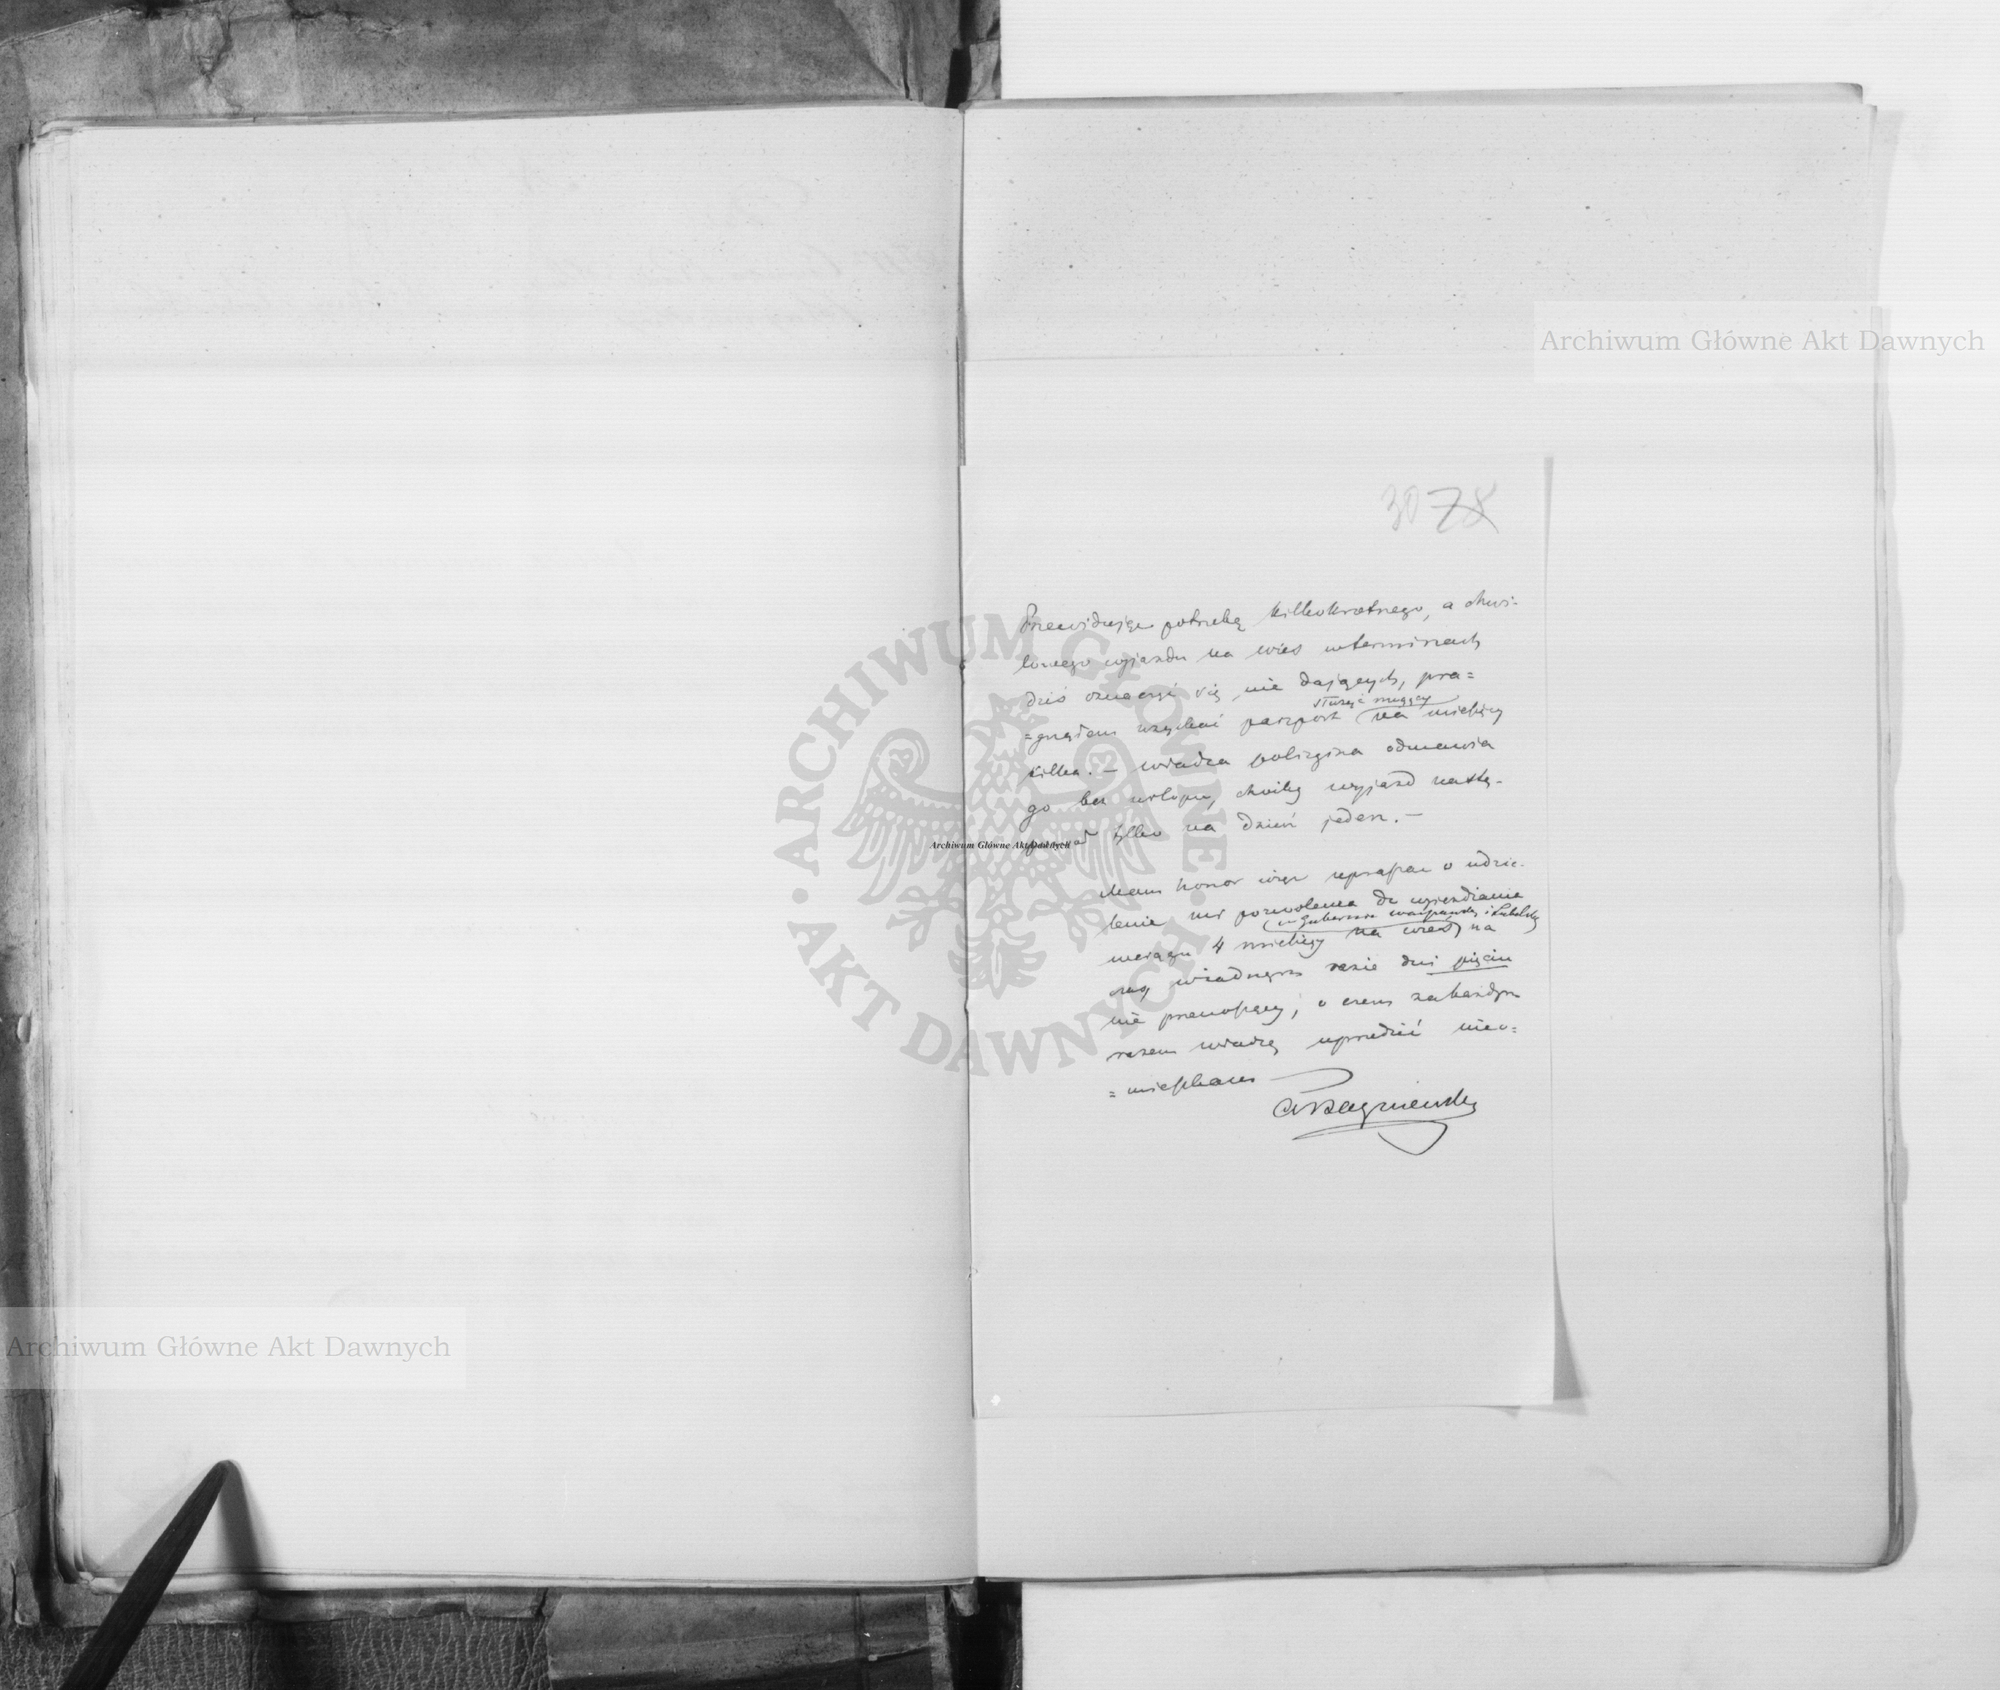 Archiwum Główne Akt Dawnych
30 78
Przewidując potrzebę kilkokrotnego, a chwi-
lowego wyjazdu na wieś w terminach
dziś oznaczyć się nie dających, pra=
służyć mogący
=gnąłem uzyskać paszport na miesięcy
kilka. — władza policyjna odmawia
go bez urlopu, choćby wyjazd nastę-
pował tylko na dzień jeden. —
Mam honor więc upraszać o udzie-
lenie mi pozwolenia do wyjeżdżania
w Gubernie warszawską i Lubelską
w ciągu 4 miesięcy na wieś, na
czas w żadnym razie dni pięciu
nie przenoszący; o czem za każdym
razem władzę uprzedzić nieo=
=mieszkam
Archiwum Główne Akt Dawnych
ARCHIWUM GŁÓWNE · AKT DAWNYCH ·
Archiwum Główne Akt Dawnych